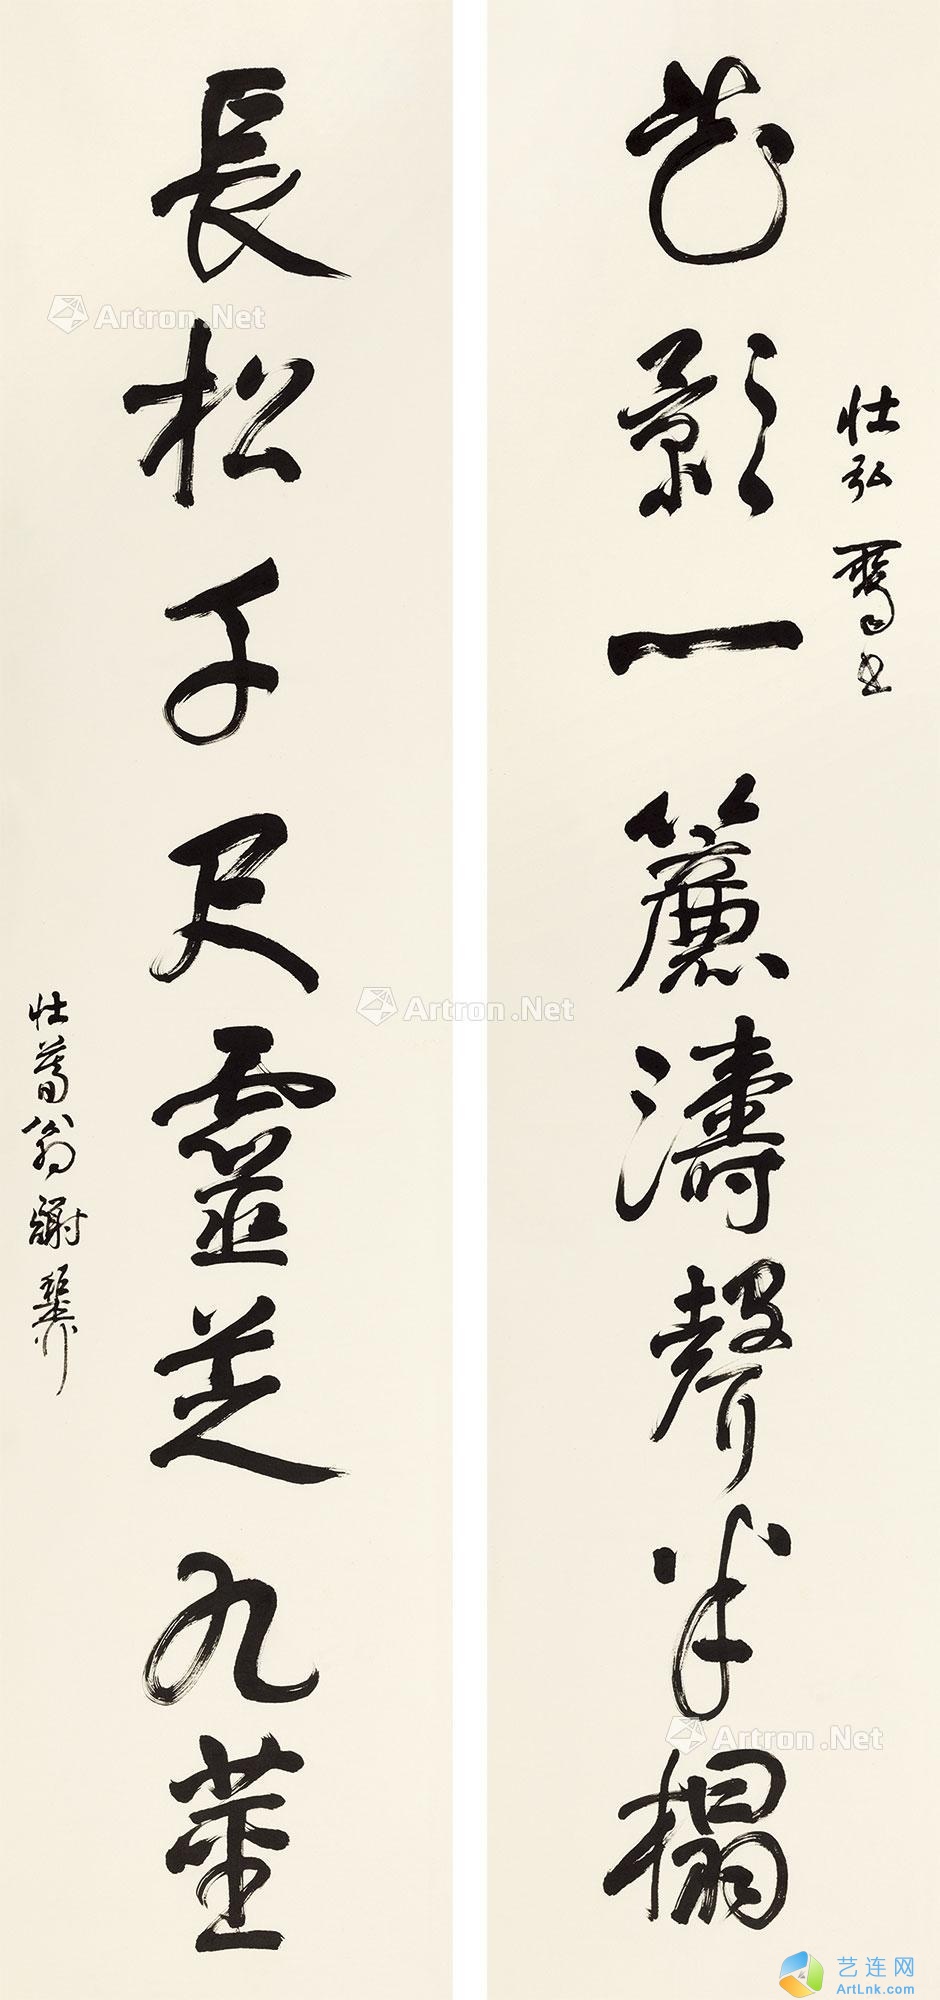 壯弘書
花影一簾濤聲半榻
長松千尺靈芝九莖
壯暮翁謝稚柳
Artron.Net
Artron.Net
Artron.Net
艺连网
ArtLnk.com